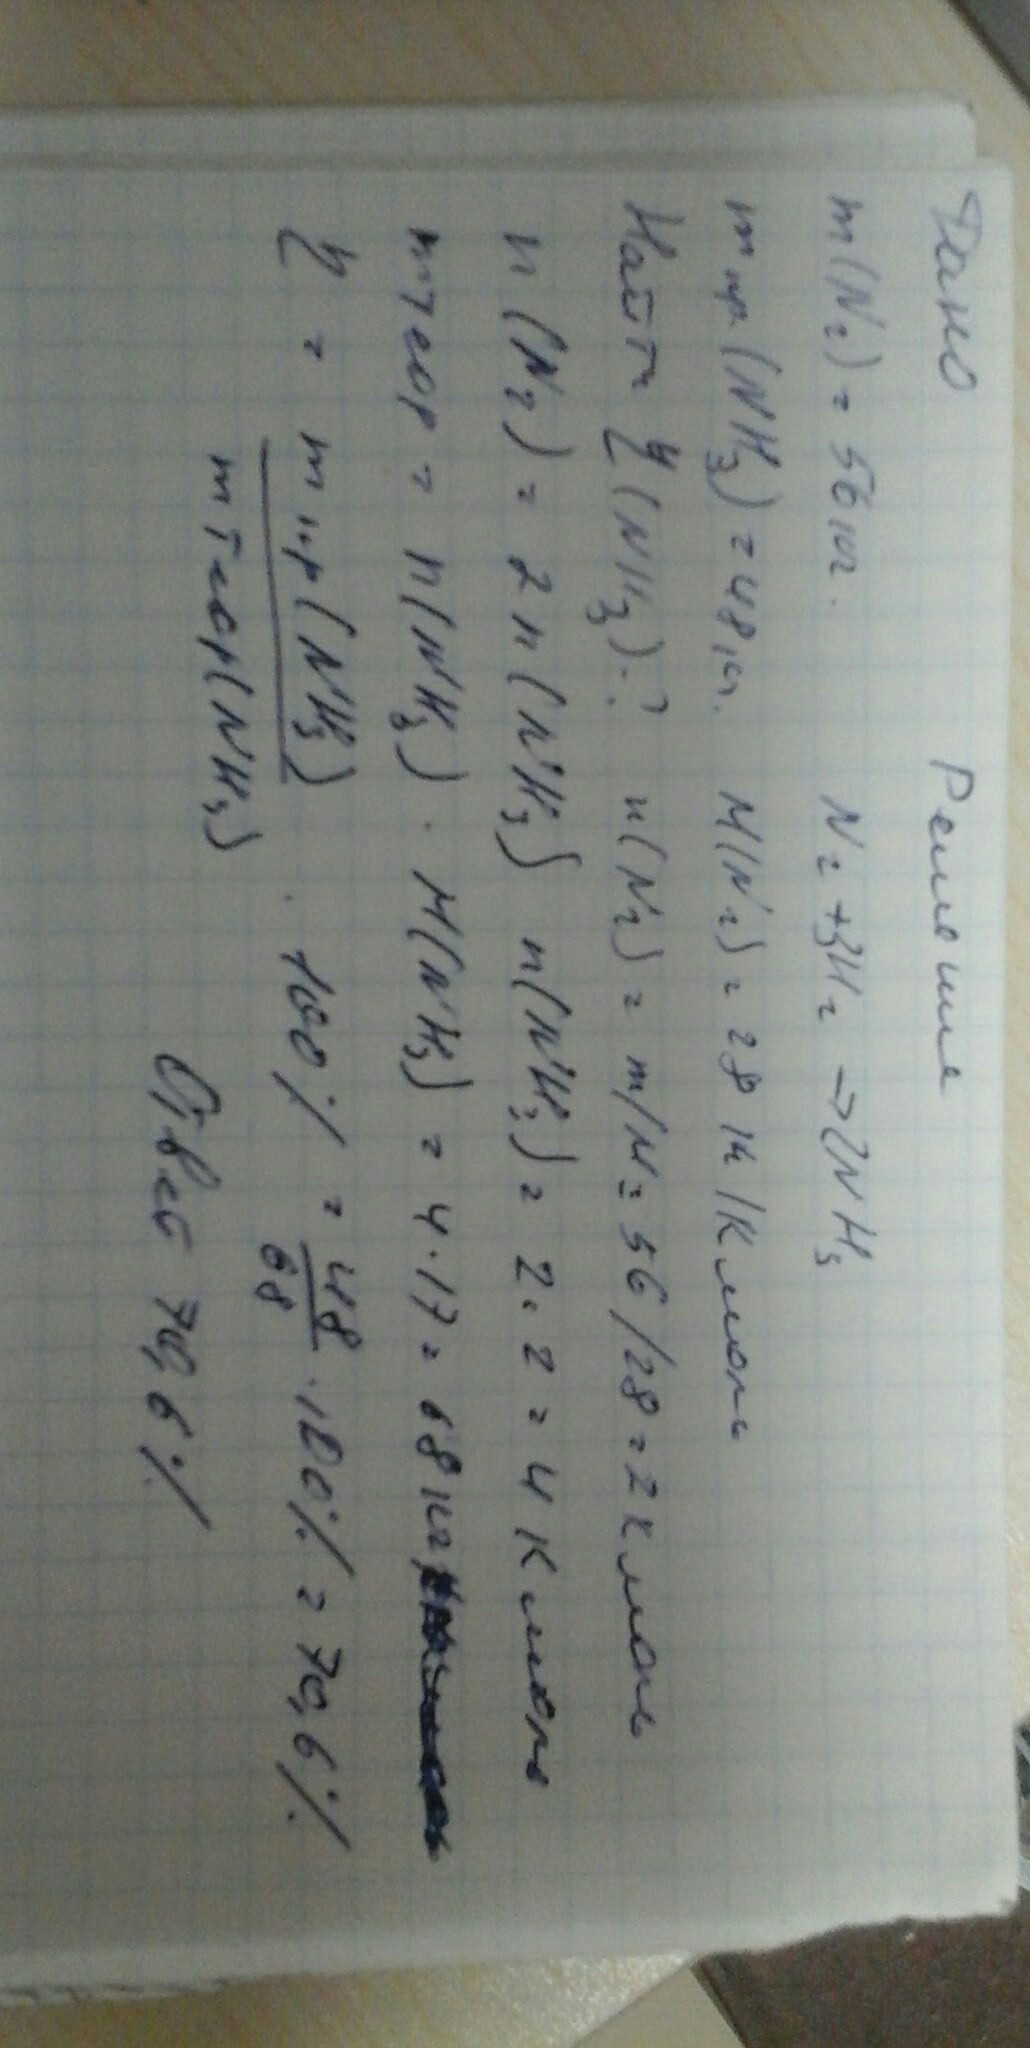 Дано Решение
m(N₂) = 56 кг. N₂ + 3H₂ → 2NH₃
m пр (NH₃) = 48 кг. M(N₂) = 28 кг/Кмоль
Найти η (NH₃)-? n(N₂) = m/M = 56/28 = 2 Кмоль
n (N₂) = 2n(NH₃) n(NH₃) = 2·2 = 4 Кмоль
mтеор = n(NH₃) · M(NH₃) = 4·17 = 68 кг
η = m пр(NH₃) / m теор(NH₃) · 100% = 48/68 · 100% = 70,6%
Ответ 70,6%